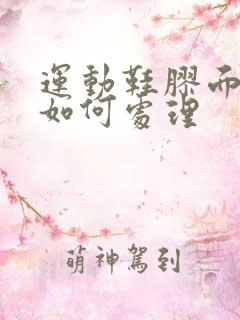 運動鞋膠面
如何處理
萌神駕到